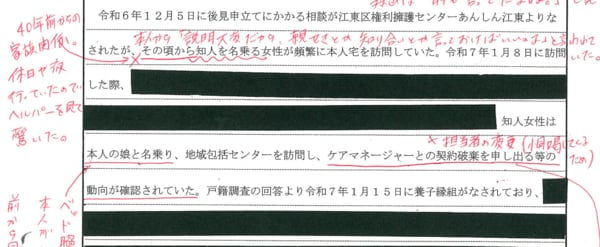 令和6年12月5日に後見申立てにかかる相談が江東区権利擁護センターあんしん江東よりな
されたが、その頃から知人を名乗る女性が頻繁に本人宅を訪問していた。令和7年1月8日に訪問
した際、
知人女性は
本人の娘と名乗り、地域包括センターを訪問し、ケアマネージャーとの契約破棄を申し出る等の
動向が確認されていた。戸籍調査の回答より令和7年1月15日に養子縁組がなされており、
40年前からの
家族関係。
休日や夜
行っていたので
ヘルパーを見て
驚いた。
「説明大変だから、親せきとか知り合いとか言っておけばいいよ」と言われて
いた。
×担当者の変更